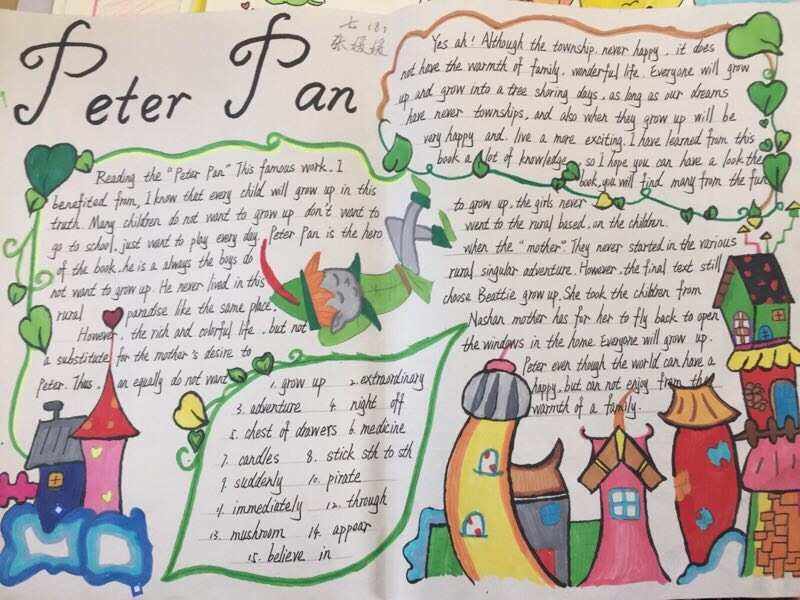 Peter Pan
七(8)
张媛媛
Reading the "Peter Pan" This famous work. I
benefited from, I know that every child will grow up in this
truth. Many children do not want to grow up. don't want to
go to school, just want to play every day. Peter Pan is the hero
of the book. he is a always the boys do
not want to grow up. He never lived in this
rural paradise like the same place.
However, the rich and colorful life, but not
a substitute for the mother's desire to
Peter. Thus, an equally do not want
to grow up, the girls never
went to the rural based, on the children.
when the "mother". They never started in the various
rural singular adventure. However, the final text still
choose Beattie grow up. She took the children from
Nashan mother has for her to fly back to open
the windows in the home. Everyone will grow up.
Peter even though the world can have a
happy, but can not enjoy from the
warmth of a family.
Yes ah! Although the township never happy, it does
not have the warmth of family, wonderful life. Everyone will grow
up and grow into a tree sharing days, as long as our dreams
have never townships, and also when they grow up will be
very happy and live a more exciting. I have learned from this
book a lot of knowledge, so I hope you can have a look the
book, you will find many from the fun
1. grow up 2. extraordinary
3. adventure 4. night off
5. chest of drawers 6. medicine
7. candles 8. stick sth to sth
9. suddenly 10. pirate
11. immediately 12. through
13. mushroom 14. appear
15. believe in